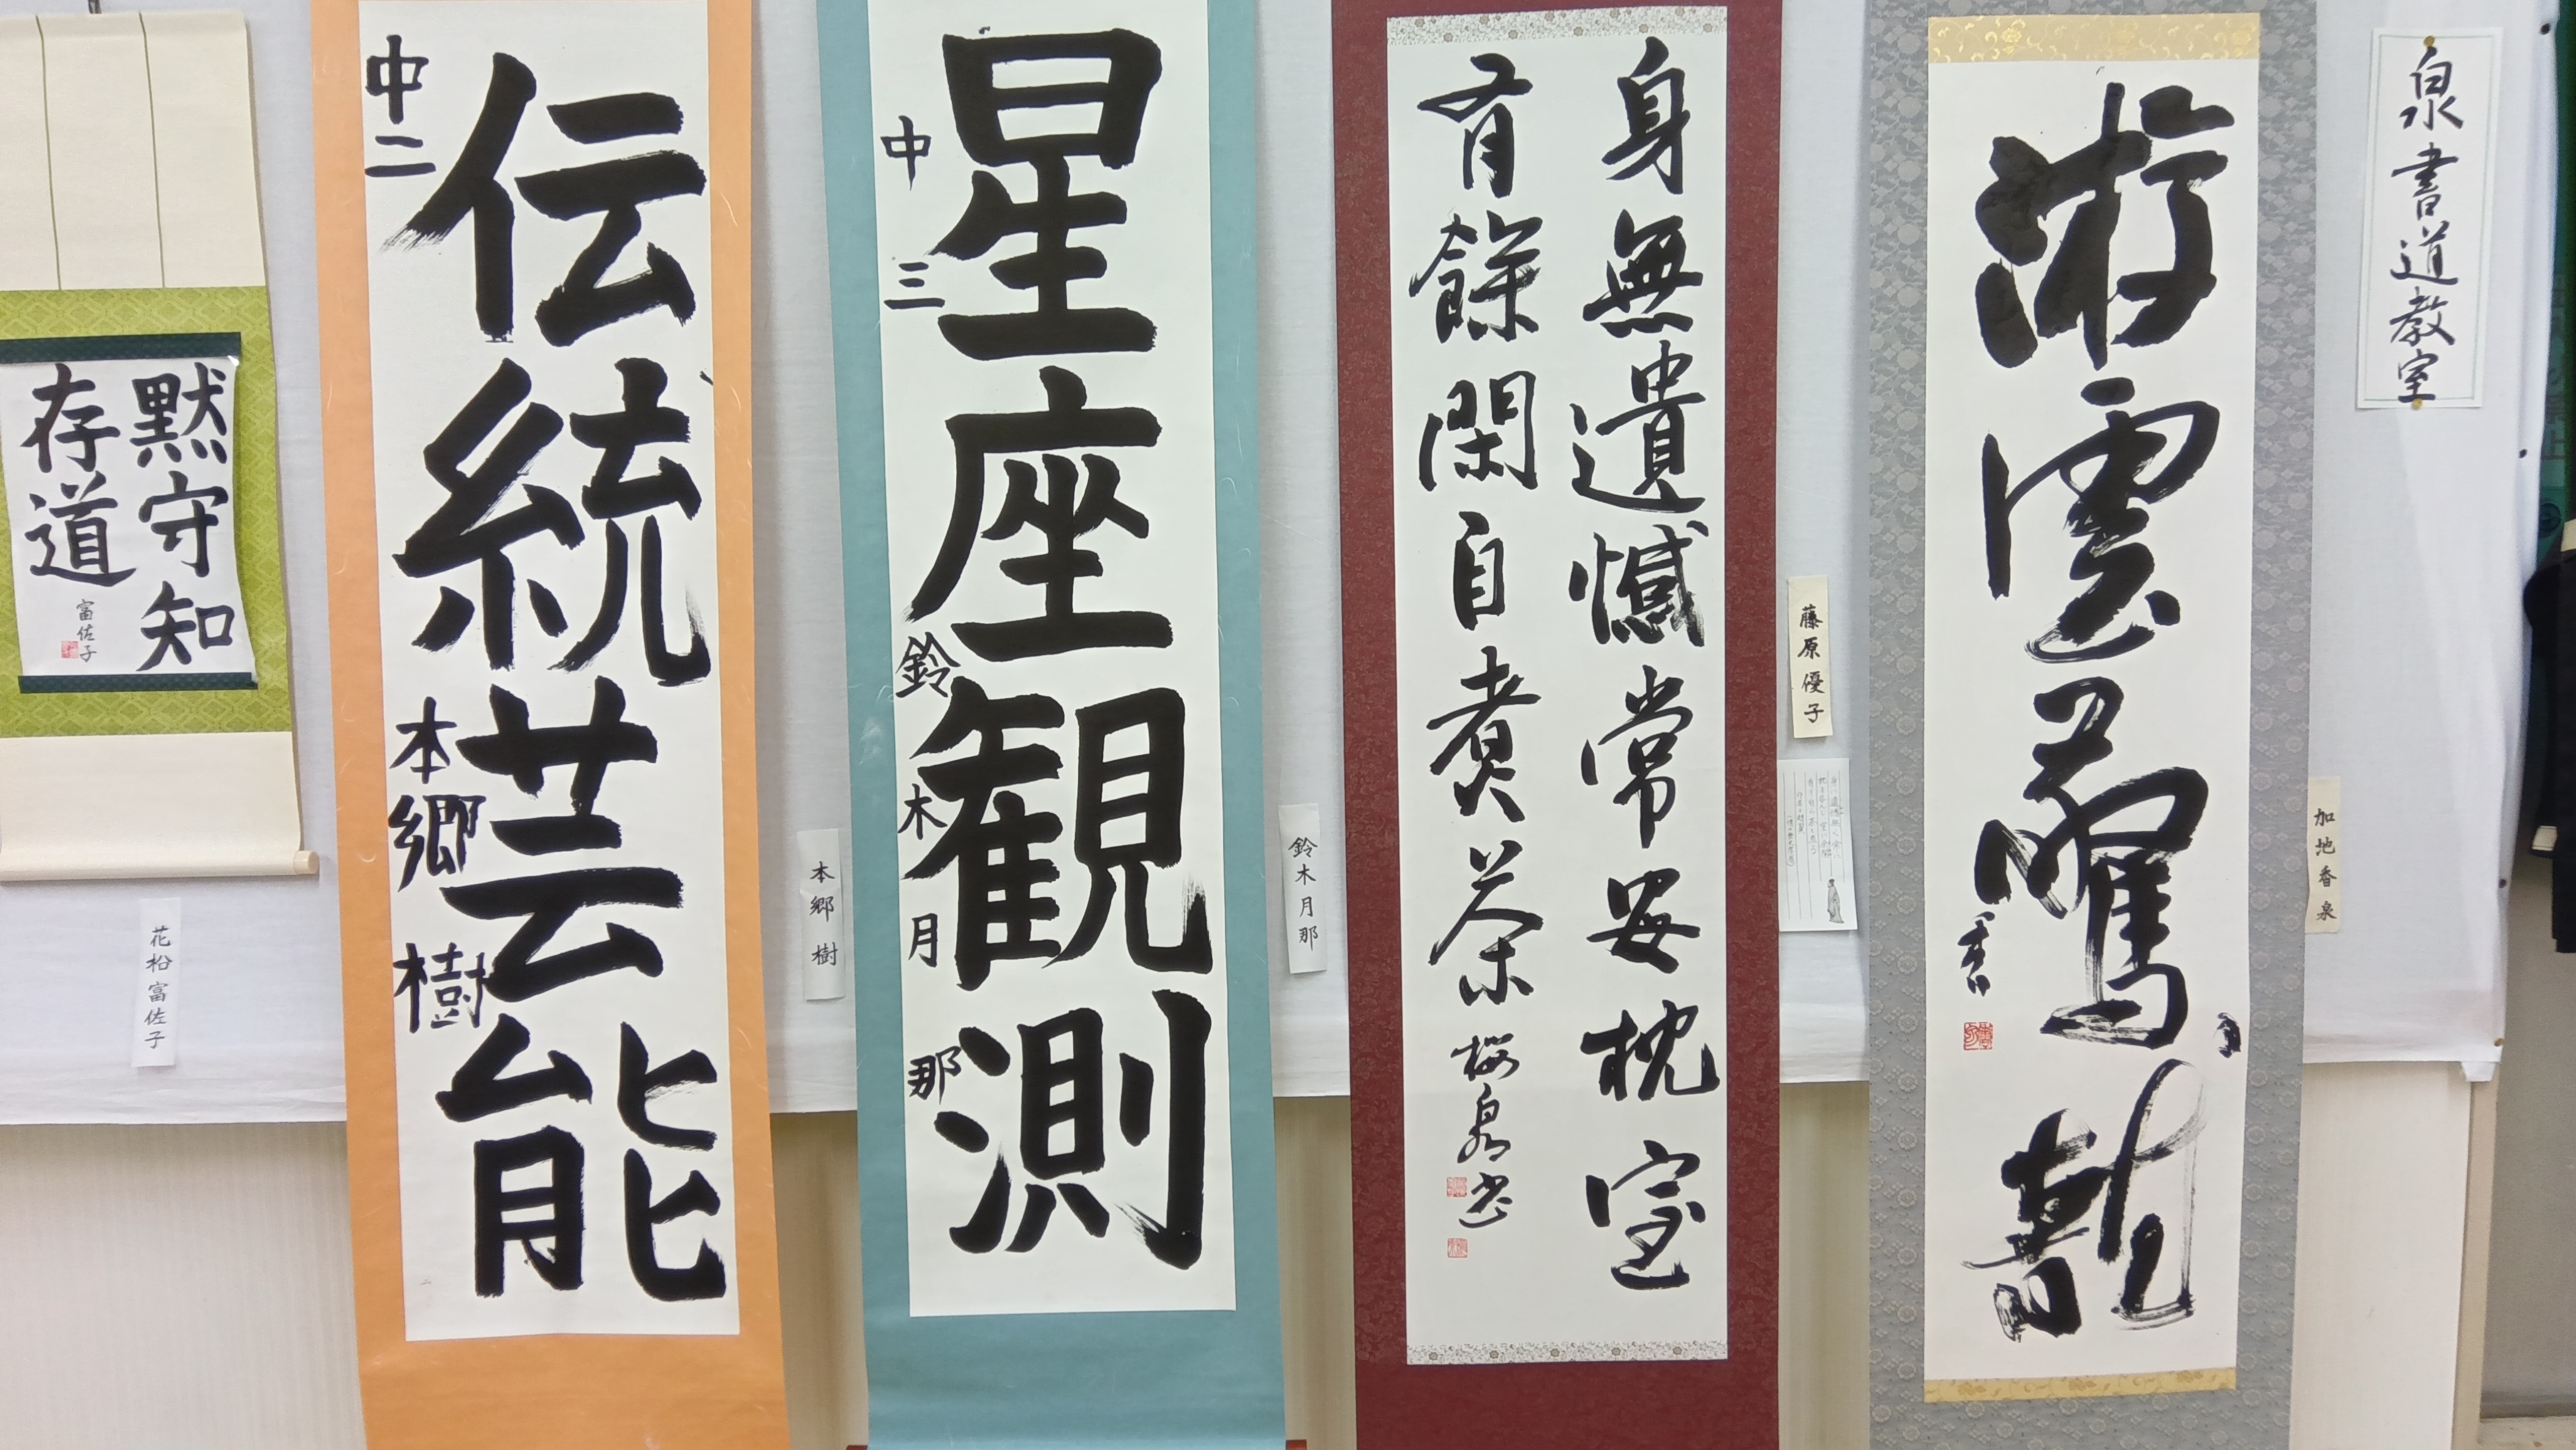 泉書道教室
游雲驚龍
加地香泉
身無遺憾常安枕室
有餘閑自煮茶
桜泉書
藤原優子
星座観測
中三
鈴木月那
鈴木月那
伝統芸能
中二
本郷樹
本郷樹
黙守知
存道
富佐子
花松富佐子